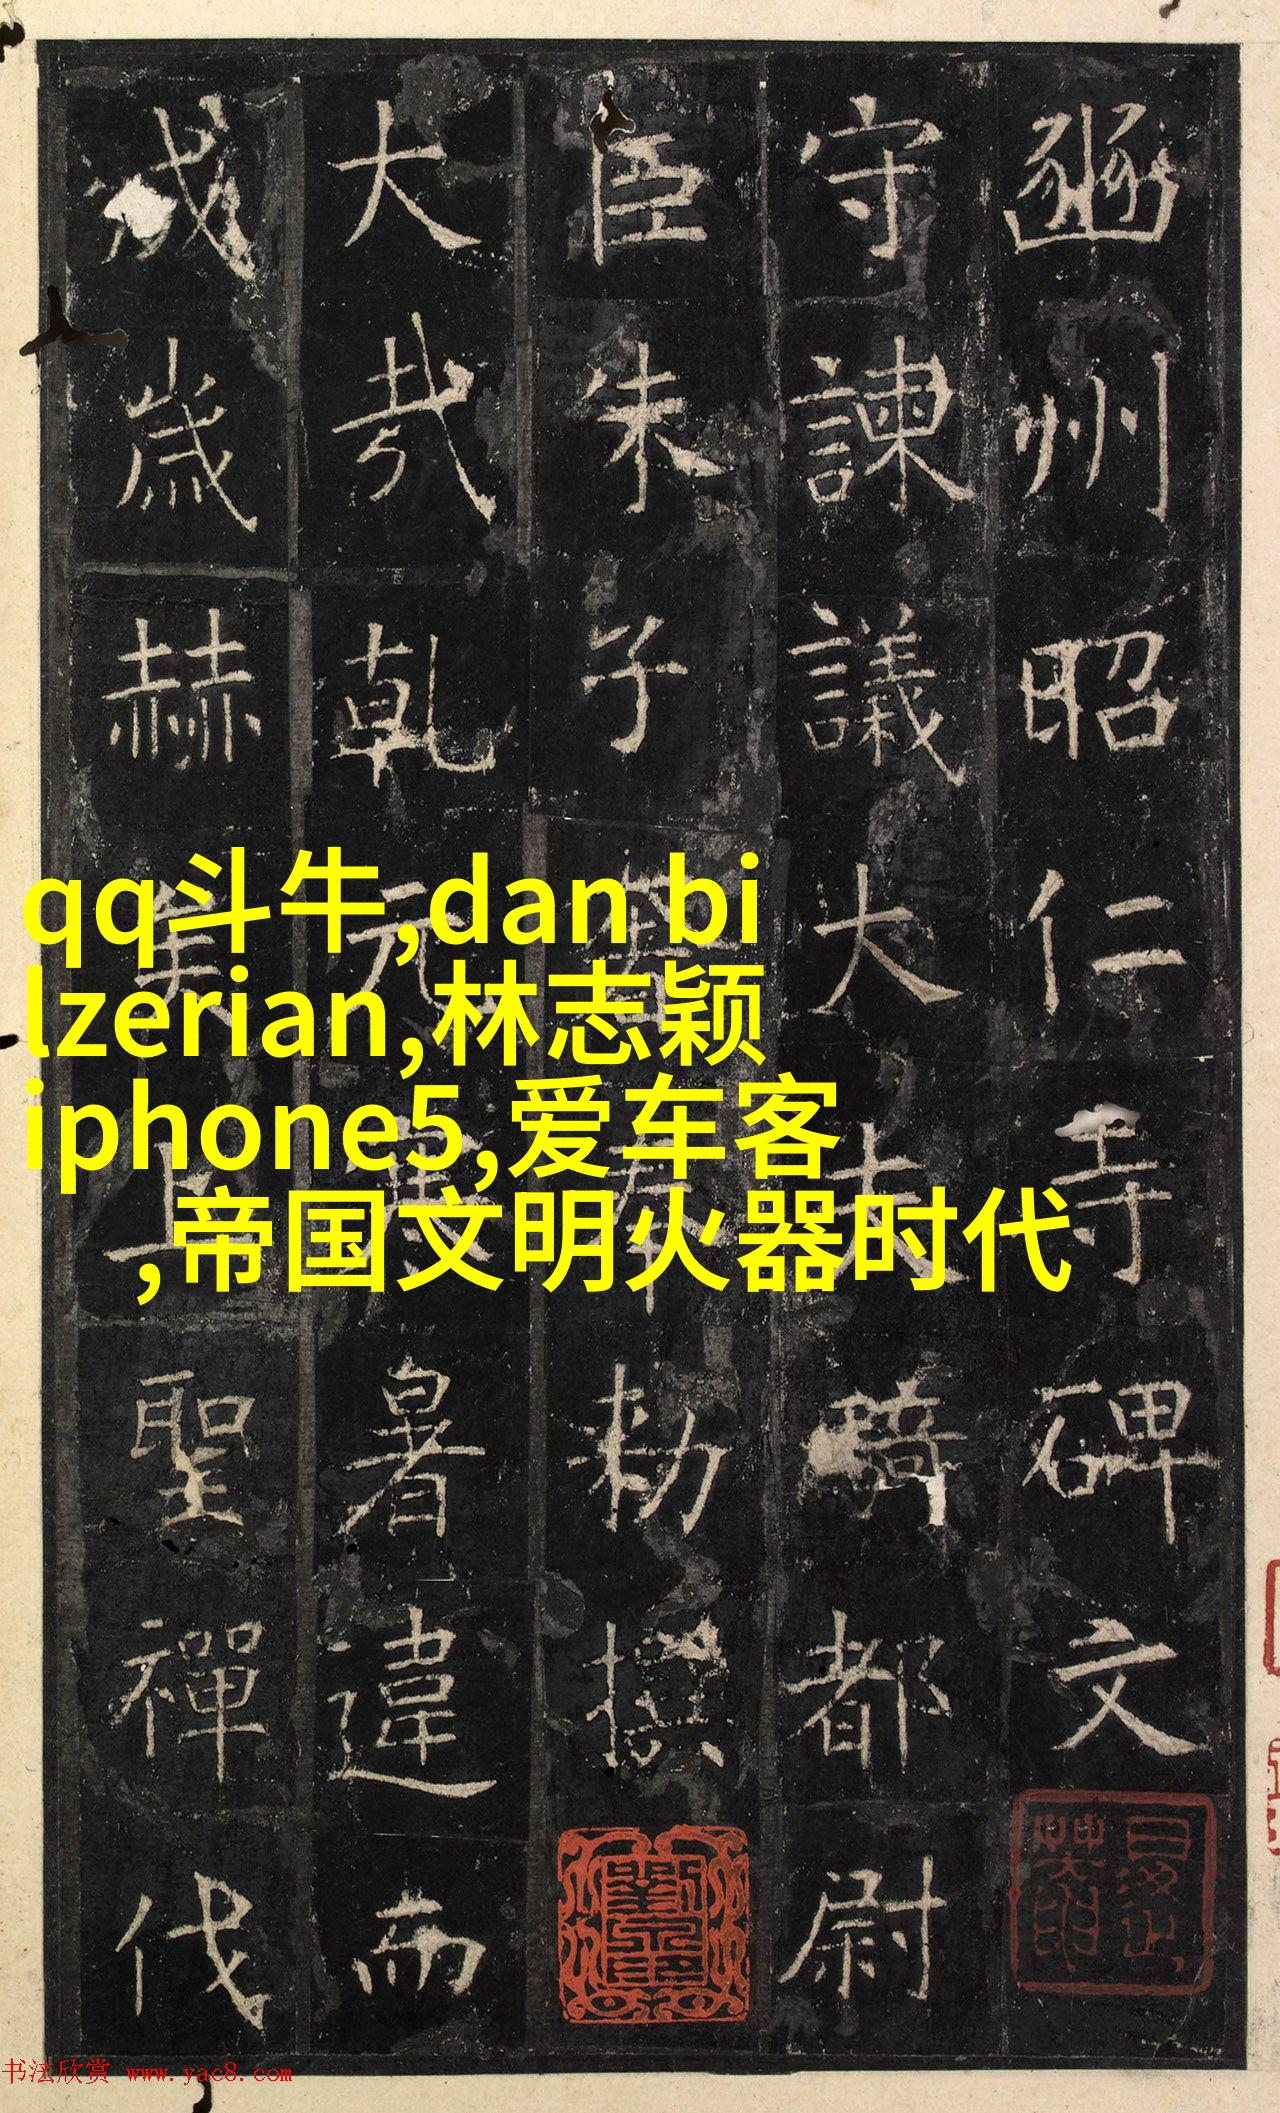 豳州昭仁寺碑文
守諫議大夫騎都尉
臣朱子奉勑撰
大哉乾元暑違而
成歲赫矣上聖禪代
qq斗牛,dan bi
lzerian,林志颖
iphone5,爱车客
,帝国文明火器时代
书法欣赏 www.yac8.com